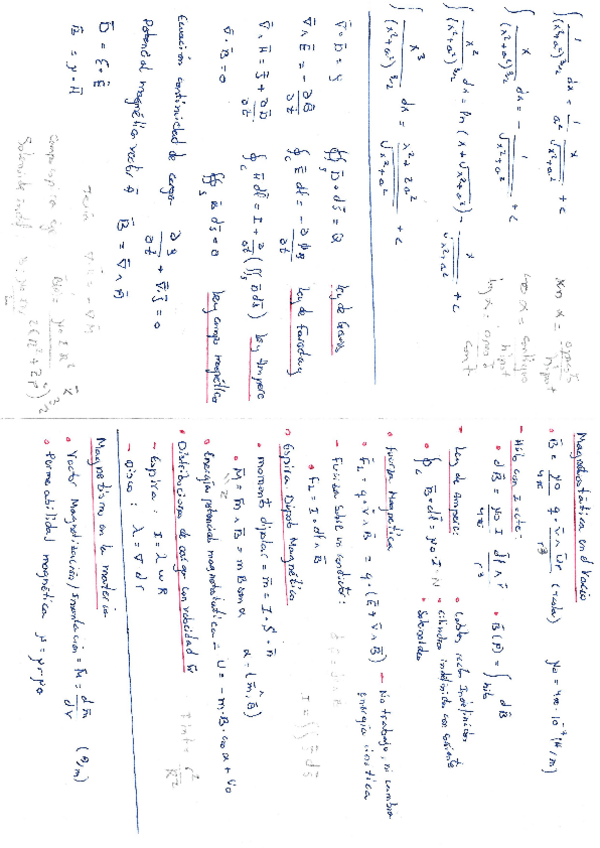 ∫ 1/(x²+a²)^3/2 dx = 1/a² x/√(x²+a²) + C
∫ x/(x²+a²)^3/2 dx = - 1/√(x²+a²) + C
∫ x²/(x²+a²)^3/2 dx = ln(x+√(x²+a²)) - x/√(x²+a²) + C
∫ x³/(x²+a²)^3/2 dx = (x²+2a²)/√(x²+a²) + C
sen α = opuesto/hipot
cos α = contiguo/hipot
tg α = opuesto/cont
∇·D = ρ ∯s D·ds = Q Ley de Gauss
∇∧E = -∂B/∂t ∮c E dl = -∂ϕB/∂t Ley de Faraday
∇∧H = J + ∂D/∂t ∮c H dl = I + ∂/∂t (∬s D ds) Ley Ampere
∇·B = 0 ∯s B ds = 0 Ley campo magnético
Ecuación continuidad de carga ∂ρ/∂t + ∇·J = 0
Potencial magnético vector A B = ∇∧A
D = ε·E
B = μ·H
Magnetostática en el Vacío
B = μ0/4π q·v∧ur/r² (Tesla) μ0 = 4π·10⁻⁷ (H/m)
- Hilo con I cte:
• dB = μ0 I/4π dl∧r/r³ • B(P) = ∫hilo dB
- Ley de Ampere:
• ∮c B·dl = μ0·I·N
• cables rectos Indefinidos
• cilindros indefinidos con corriente
• Solenoides
• Fuerza Magnética
• FL = q·v∧B = q·(E+v∧B) - No trabajo, ni cambia energía cinética
- Fuerza sobre un conductor:
• FL = I·dl∧B
• Espira Dipolo Magnético
• momento dipolar = m = I·S·n
• M = m∧B = m B sen α α = (m^B)
• Energía potencial magnetostática = U = -m·B·cos α + U0
• Distribuciones de carga con velocidad w
- Espira: I = λ w R
- Disco: λ = σ dr
Magnetismo en la materia
• Vector Magnetización/Imantación = M = dm/dV (A/m)
• Permeabilidad magnética μ = μr μ0